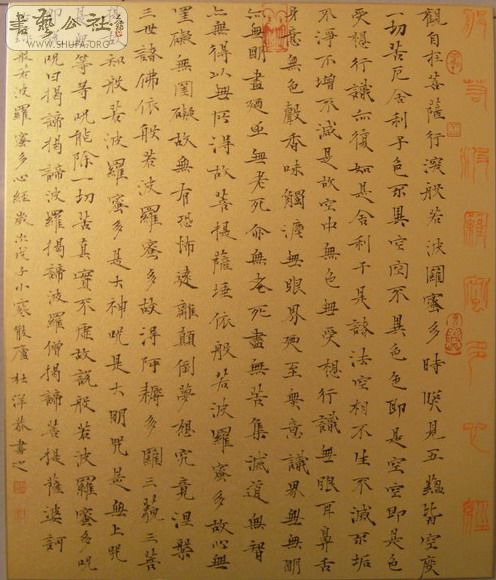 般若波羅蜜多心經
觀自在菩薩行深般若波羅蜜多時照見五蘊皆空度
一切苦厄舍利子色不異空空不異色色即是空空即是色
受想行識亦復如是舍利子是諸法空相不生不滅不垢
不淨不增不減是故空中無色無受想行識無眼耳鼻舌
身意無色聲香味觸法無眼界廼至無意識界無無明
亦無明盡廼至無老死亦無老死盡無苦集滅道無智
亦無得以無所得故菩提薩埵依般若波羅蜜多故心無
罣礙無罣礙故無有恐怖遠離顛倒夢想究竟涅槃
三世諸佛依般若波羅蜜多故得阿耨多羅三藐三菩
提故知般若波羅蜜多是大神咒是大明咒是無上咒
等等咒能除一切苦真實不虛故說般若波羅蜜多咒
咒曰揭諦揭諦波羅揭諦波羅僧揭諦菩提薩婆訶
般若波羅蜜多心經歲次戊子小寒散廬杜洋恭書之
書藝公社
WWW.SHUFA.ORG